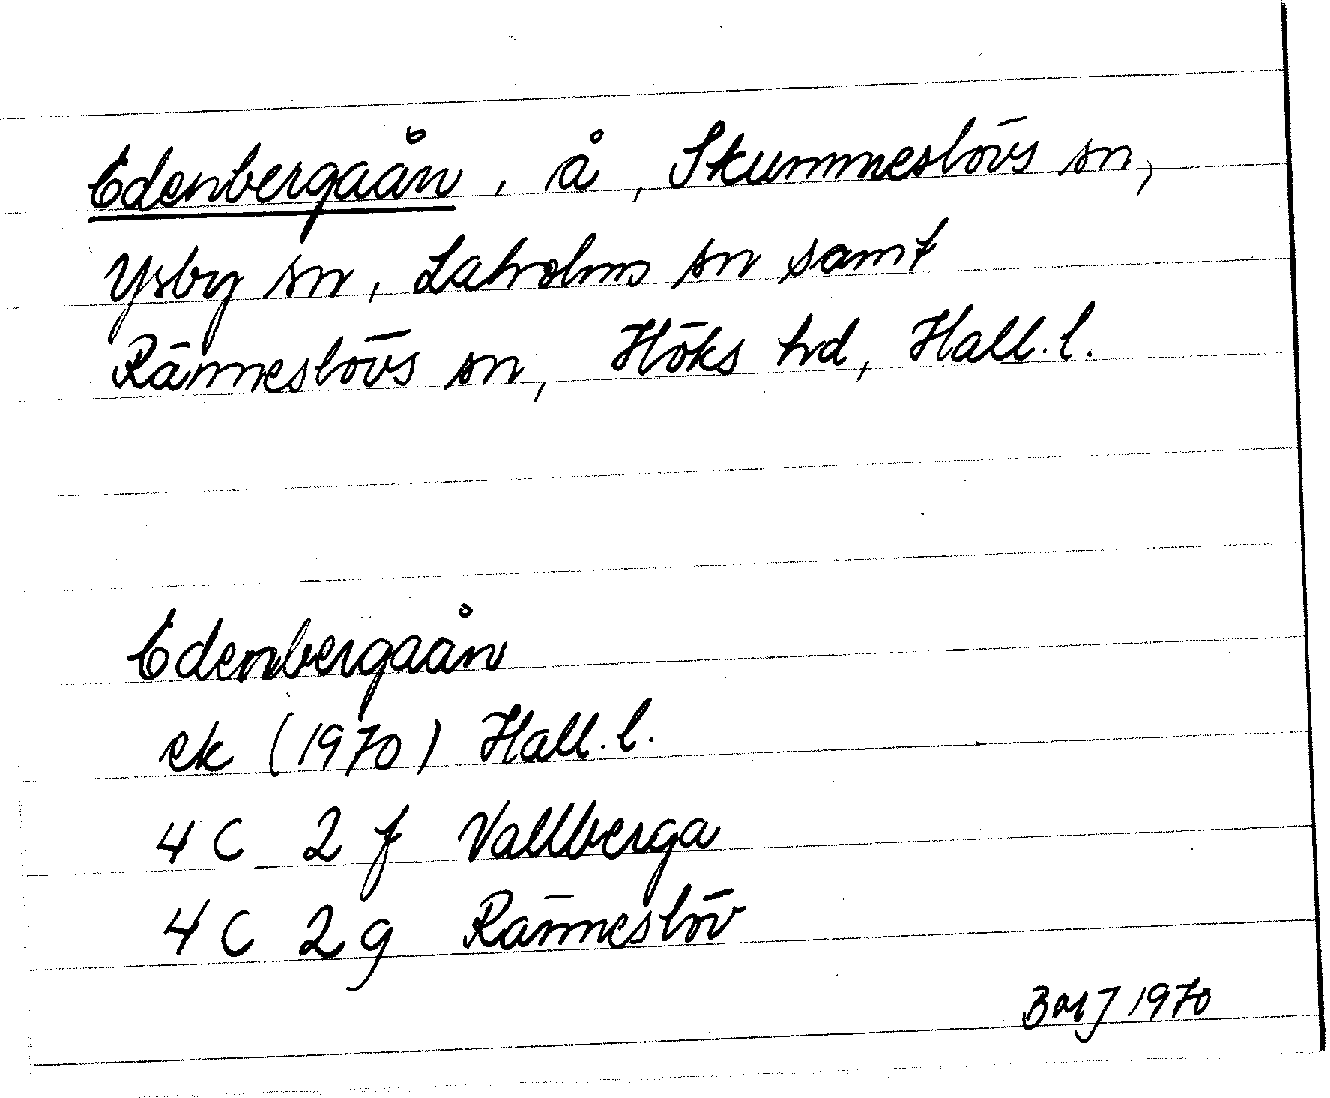 Edenbergaån, å, Skummeslövs sn,
Ysby sn, Laholms sn samt
Ränneslövs sn, Höks hd, Hall. l.
Edenbergaån
ek (1970) Hall. l.
4C 2f Vallberga
4C 2g Ränneslöv
1970